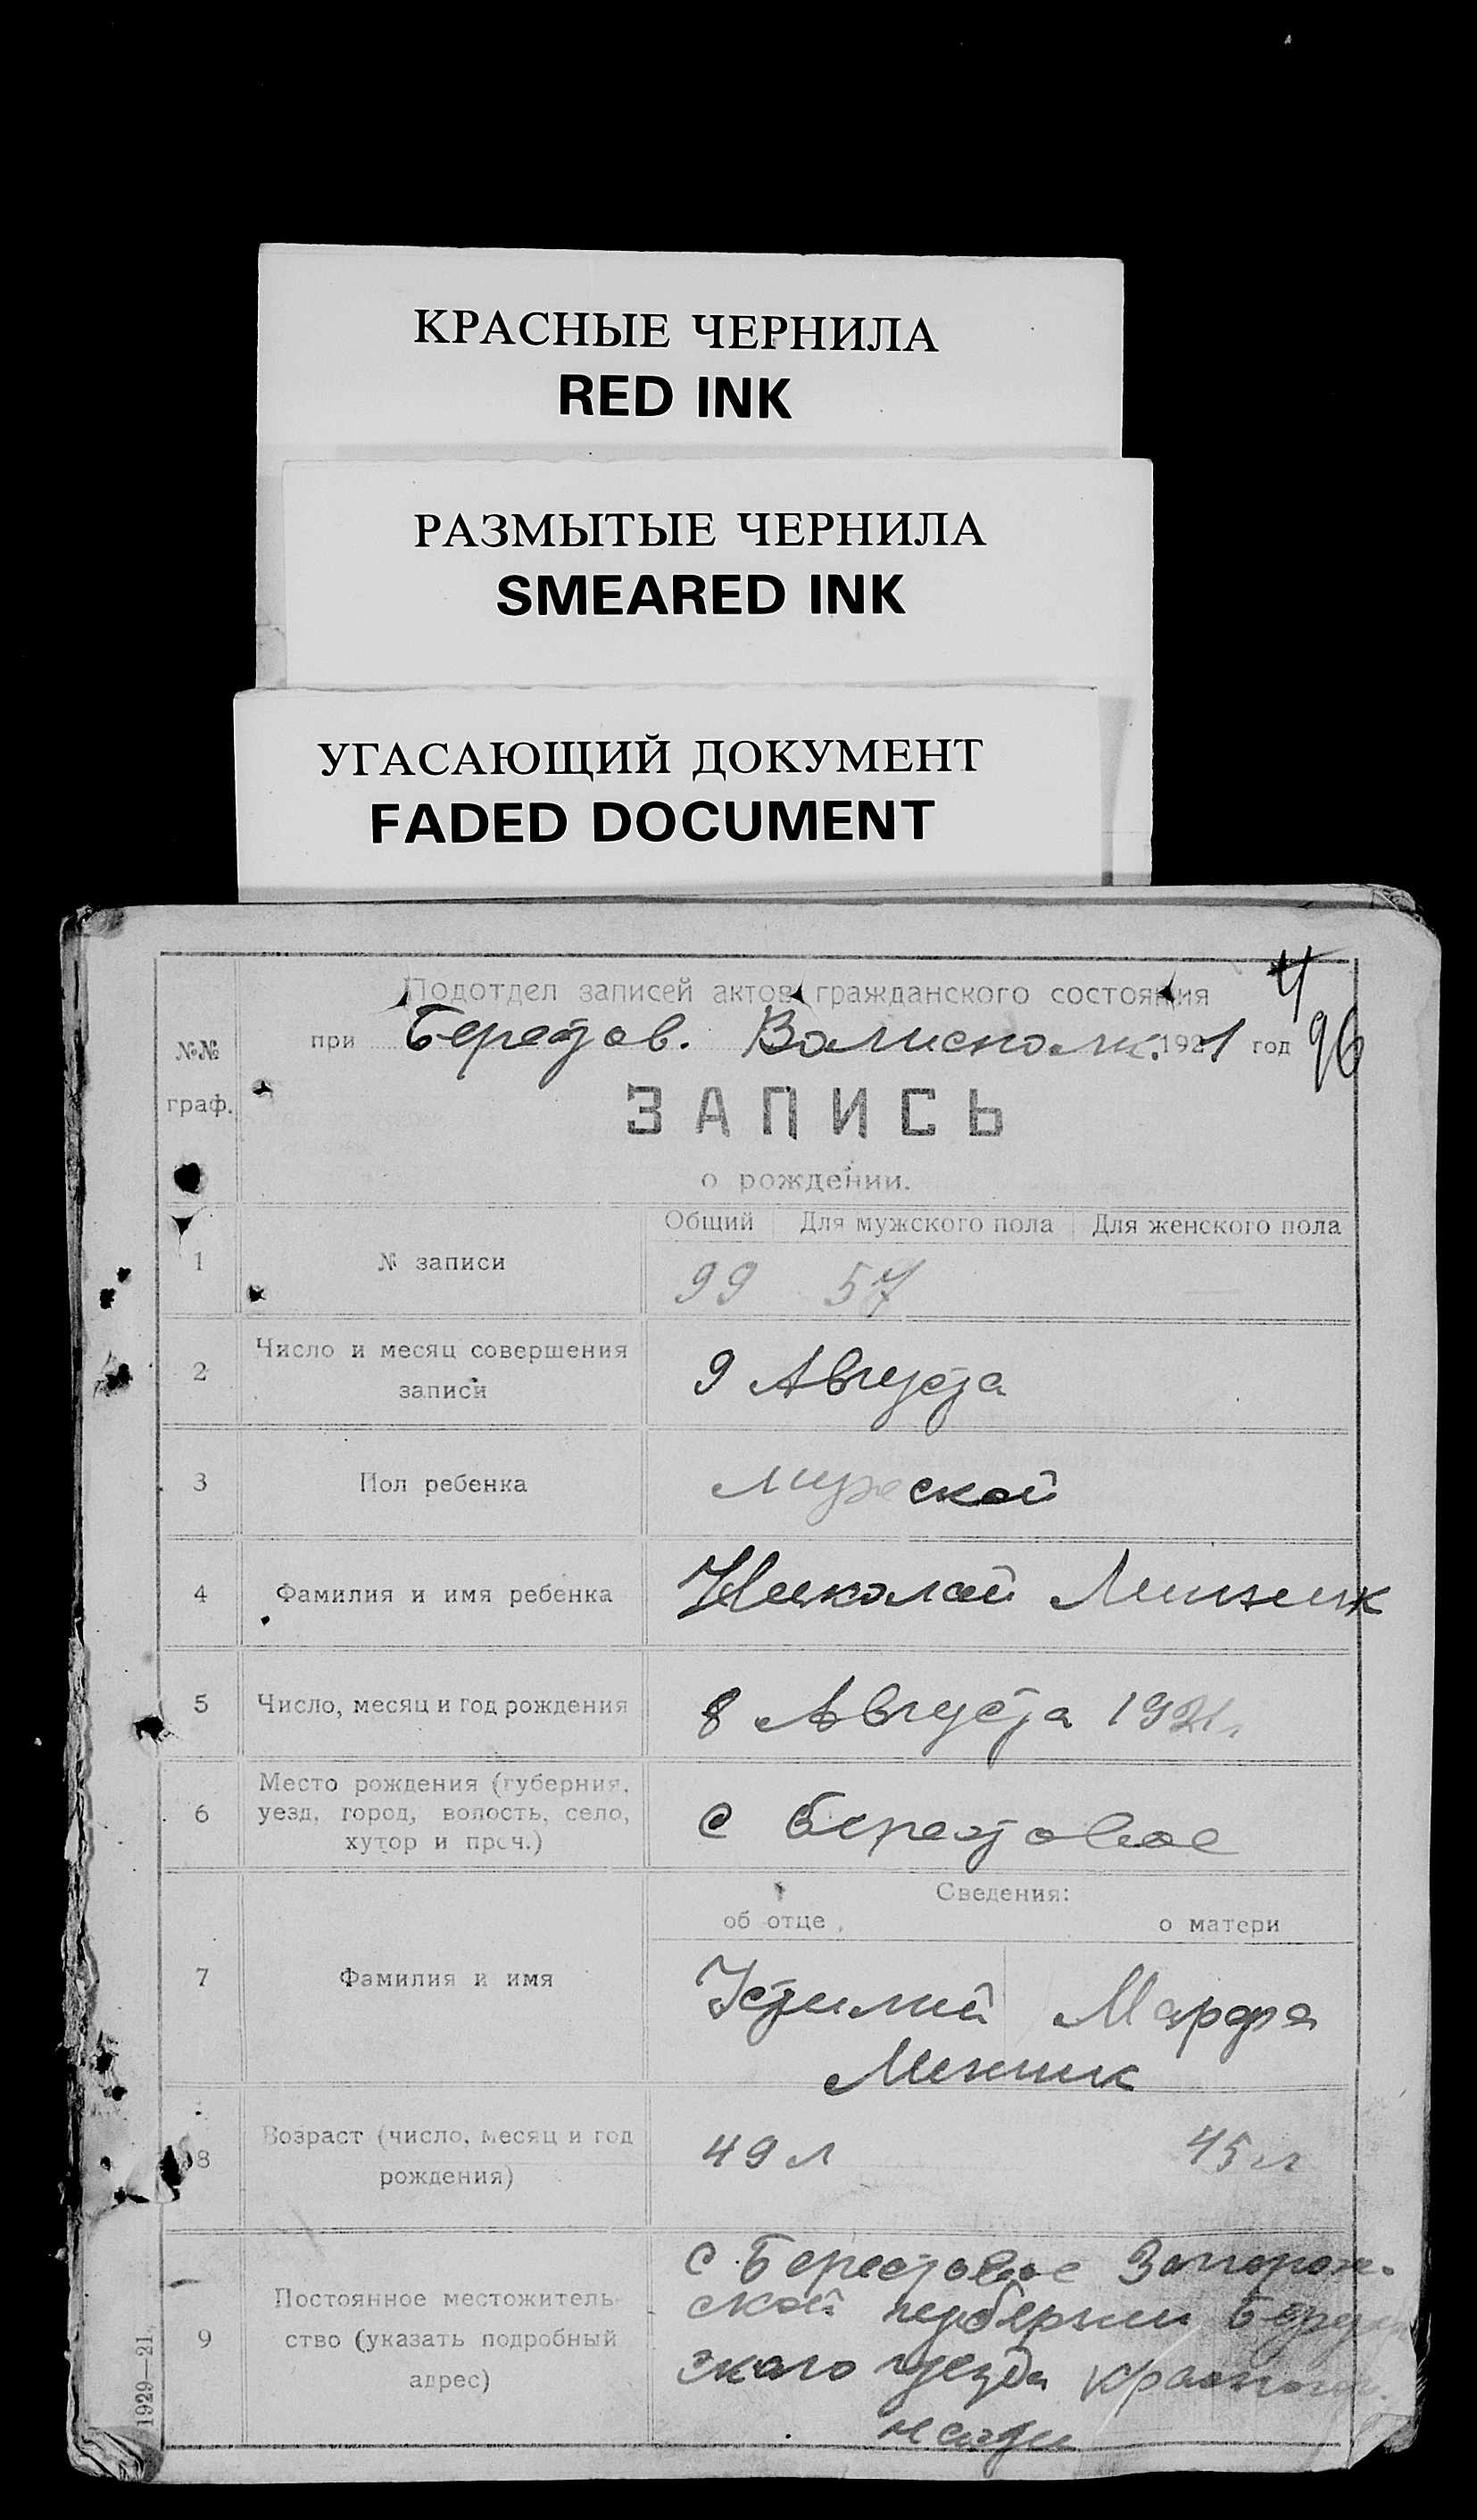 КРАСНЫЕ ЧЕРНИЛА
RED INK
РАЗМЫТЫЕ ЧЕРНИЛА
SMEARED INK
УГАСАЮЩИЙ ДОКУМЕНТ
FADED DOCUMENT
Подотдел записей актов гражданского состояния
при Берестов. 1921 год
96
№№
граф.
ЗАПИСЬ
о рождении.
Общий Для мужского пола Для женского пола
1 № записи 99 57 —
2 Число и месяц совершения
записи
9 Августа
3 Пол ребенка мужеской
4 Фамилия и имя ребенка Николай
5 Число, месяц и год рождения 8 Августа 1921 г.
6 Место рождения (губерния,
уезд, город, волость, село,
хутор и проч.)
с Берестовое
Сведения:
об отце о матери
7 Фамилия и имя
Марфа
8 Возраст (число, месяц и год
рождения)
49 л 45 л
9 Постоянное местожитель-
ство (указать подробный
адрес)
с. Берестовое Запорож-
ской губернии
ского уезда
1929—21